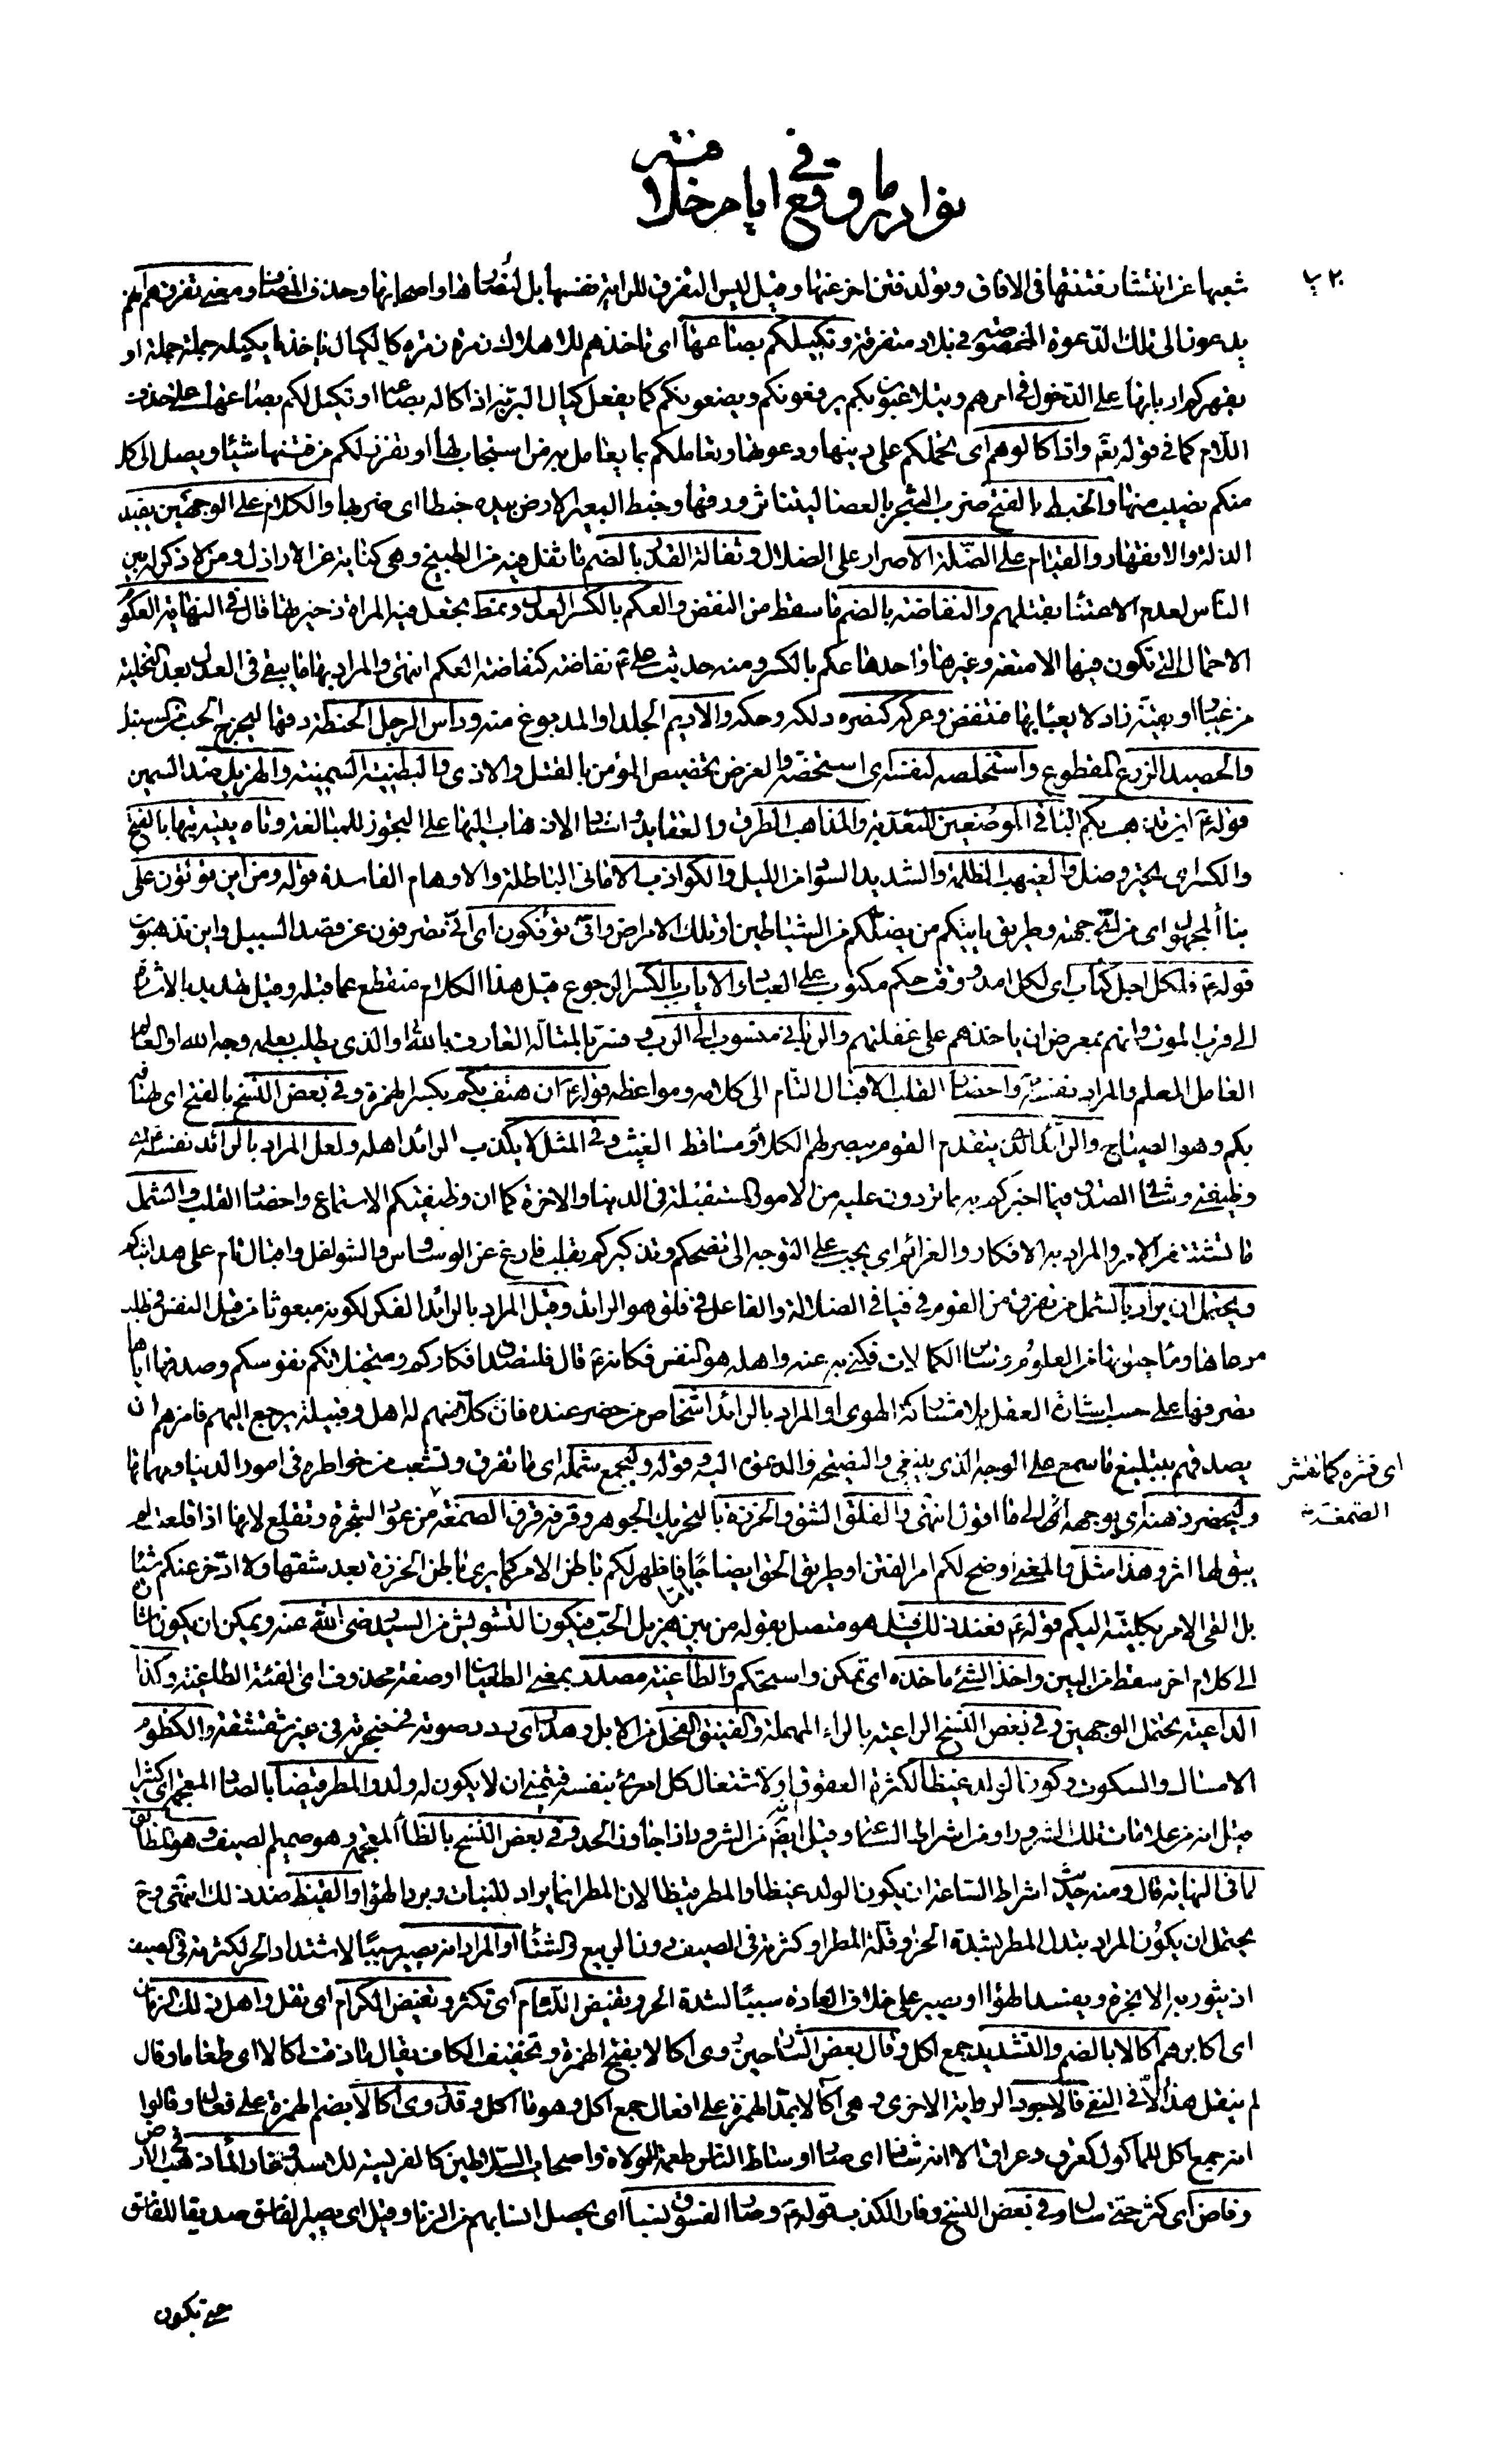 نوادر ما وقع في ايام خلافته
شعبها عن انتشار فتنتها فى الافاق وتولد فتن اخر عنها وقيل ليس التفرق للراية نفسها بل لنصارها واصحابها وحذف المضاف ومعنى تفرقهم انهم
يدعون الى تلك الدعوة المخصوصة فى بلاد متفرقة وتكيلكم بصاعها اى تاخذهم للاهلاك زمرة زمرة كالكيال ياخذ ما يكيله جملة جملة او
يقهركم اربابها على الدخول فى امرهم ويتلاعبون بكم يرفعونكم ويضعونكم كما يفعل كيال البر به اذا كاله بصاعه او تكيل لكم بصاعها على حذف
اللام كما فى قوله تعـ واذا كالوهم اى تحملكم على دينها ودعوتها وتعاملكم بما يعامل به من استجاب لها او تفرز لكم من فتنها شيئا ويصل الى كل
منكم نصيب منها والخبط بالفتح ضرب الشجر بالعصا ليتناثر ورقها وخبط البعير الارض بيده خبطا اى ضربها والكلام على الوجهين يفيد
الذلة والانقهار والقيام على الضلة الاصرار على الضلال وثفالة القدر بالضم ما ثفل فيه من الطبيخ وهى كناية عن الاراذل ومن لا ذكر له بين
الناس لعدم الاعتناء بقتلهم والنفاضة بالضم ما سقط من النفض والعكم بالكسر العدل ونمط تجعل فيه المراة ذخيرتها قال فى النهاية العكوم
الاحمال التى تكون فيها الامتعة وغيرها واحدها عكم بالكسر ومنه حديث على ع نفاضة كنفاضة العكم انتهى والمراد بها ما يبقى فى العدل بعد التخلية
من غبار او بقية زاد لا يعبأ بها فتنفض وعركه كنصره دلكه وحكه والاديم الجلد او المدبوغ منه وداس الرجل الحنطة دقها ليخرج الحب من السنبل
والحصيد الزرع المقطوع واستخلصه لنفسه اى استخصه والغرض تخصيص المؤمن بالقتل والاذى والبطينة السمينة والهزيل ضد السمين
قوله ع اين تذهب بكم الباء فى الموضعين للتعدية والمذاهب الطرق والعقايد واسناد الاذهاب اليها على التجوز للمبالغة وتاه يتيه تيها بالفتح
والكسر اى تحير وضل والغيهب الظلمة والشديد السواد من الليل والكواذب الامانى الباطلة والاوهام الفاسدة قوله ومن اين تؤتون على
بناء المجهول اى من اى جهة وطريق ياتيكم من يضلكم من الشياطين او تلك الامراض وانى تؤفكون اى انى تصرفون عن قصد السبيل واين تذهبون
قوله ع فلكل اجل كتاب اى لكل امد ووقت حكم مكتوب على العباد والاياب بالكسر الرجوع قيل هذا الكلام منقطع عما قبله وقيل تهديد بالاشارة
الى قرب الموت وانهم بمعرض ان ياخذهم على غفلتهم والربانى منسوب الى الرب وفسر بالمتأله العارف بالله او الذى يطلب بعلمه وجه الله او العالم
العامل المعلم والمراد نفسه ع واحضار القلب الاقبال التام الى كلامه ومواعظه قوله ع ان هتف بكم بكسر الهمزة وفى بعض النسخ بالفتح اى لهتافه
بكم وهو الصياح والرائد الذى يتقدم القوم يبصر لهم الكلأ ومساقط الغيث وفى المثل لا يكذب الرائد اهله ولعل المراد بالرائد نفسه ع اى
وظيفتى وشانى الصدق فيما اخبركم به مما تردون عليه من الامور المستقبلة فى الدنيا والاخرة كما ان وظيفتكم الاستماع واحضار القلب والشمل
ما تشتت من الامر والمراد به الافكار والعزائم اى يجب على التوجه الى نصحكم وتذكيركم بقلب فارغ عن الوساوس والشواغل واقبال تام على هدايتكم
ويحتمل ان يراد بالشمل من تفرق من القوم فى فيافى الضلالة والفاعل فى فلق هو الرائد وقيل المراد بالرائد الفكر لكونه مبعوثا من قبل النفس فى طلب
مرعاها وماء حيوتها من العلوم وسائر الكمالات فكنى به عنه واهله هو النفس فكانه ع قال فليصدق افكاركم ومتخيلاتكم نفوسكم وصدقها اياها
تصرفها على حسب اشارة العقل بلا مشاركة الهوى او المراد بالرائد اشخاص من حضر عنده فان كلا منهم له اهل وقبيلة يرجع اليهم فامرهم ان
يصدقهم بتبليغ ما سمع على الوجه الذى ينبغى والنصيحة والدعوة اليه قوله وليجمع شمله اى ما تفرق وتشعب من خواطره فى امور الدنيا ومهماتها
وليحضر ذهنه اى يوجهه الى ما اقول انتهى والفلق الشق والخرزة بالتحريك الجوهر وقرفه قرف الصمغة من عود الشجرة وتقلع لانها اذا قلعت لم
يبق لها اثر وهذا مثل والمعنى اوضح لكم امر الفتن او طريق الحق ايضاحا تاما فاظهر لكم باطن الامر كما يرى باطن الخرزة بعد شقها ولا ادخر عنكم شيئا
بل القى الامر بكليته اليكم قوله ع فعند ذلك قيل هو متصل بقوله من بين هزيل الحب فيكون التشويش من السيد رضى الله عنه ويمكن ان يكون اشارة
الى كلام اخر سقط من البين واخذ الشئ ماخذه اى تمكن واستحكم والطاغية مصدر بمعنى الطغيان او صفة محذوف اى الفئة الطاغية وكذا
الداعية يحتمل الوجهين وفى بعض النسخ الراعية بالراء المهملة والفنيق الفحل من الابل وهدر اى ردد صوته فى حنجرته فى غير شقشقة والكظوم
الامساك والسكوت وكون الولد غيظا لكثرة العقوق او لاشتغال كل امرئ بنفسه فيتمنى ان لا يكون له ولد والمطر قيضا بالضاد المعجمة اى كثيرا
قيل انه من علامات تلك الشرور او من اشراط الساعة وقيل انه ايضا من الشرور اذا جاوز الحد وفى بعض النسخ بالظاء المعجمة وهو صميم الصيف وهو المطابق
لما فى النهاية قال ومنه حديث اشراط الساعة ان يكون الولد غيظا والمطر قيظا لان المطر انما يراد للنبات وبرد الهواء والقيظ ضد ذلك انتهى وح
يحتمل ان يكون المراد تبدل المطر بشدة الحر وقلة المطر او كثرته فى الصيف دون الربيع والشتاء او المراد انه يصير سببا لاشتداد الحر لكثرته فى الصيف
اذ يثور به الابخرة ويفسد الهواء او يصير على خلاف العادة سببا لشدة الحر وتفيض اللئام اى تكثر وتغيض الكرام اى تقل واهل ذلك الزمان
اى اكابرهم اكالا بالضم والتشديد جمع اكل وقال بعض الشارحين روى اكالا بفتح الهمزة وتخفيف الكاف يقال ما ذقت اكالا اى طعاما وقال
لم ينقل هذا الا فى النفى فالاجود الرواية الاخرى وهى آكالا بمد الهمزة على افعال جمع اكل وهو ما اكل وقد روى اكالا بضم الهمزة على فعال وقالوا
انه جمع اكل للمأكول كعرق وعراق الا انه شاذ اى صار اوساط الناس طعمة للولاة واصحاب السلاطين كالفريسة للاسد وغار الماء ذهب فى الارض
وفاض اى كثر حتى سال وفى بعض النسخ وفار الكذب قوله ع وصار الفسوق نسبا اى يحصل انسابهم من الزنا وقيل اى يصير الفاسق صديقا للفاسق
اى قشره كما تقشر
الصمغة
حتى يكون